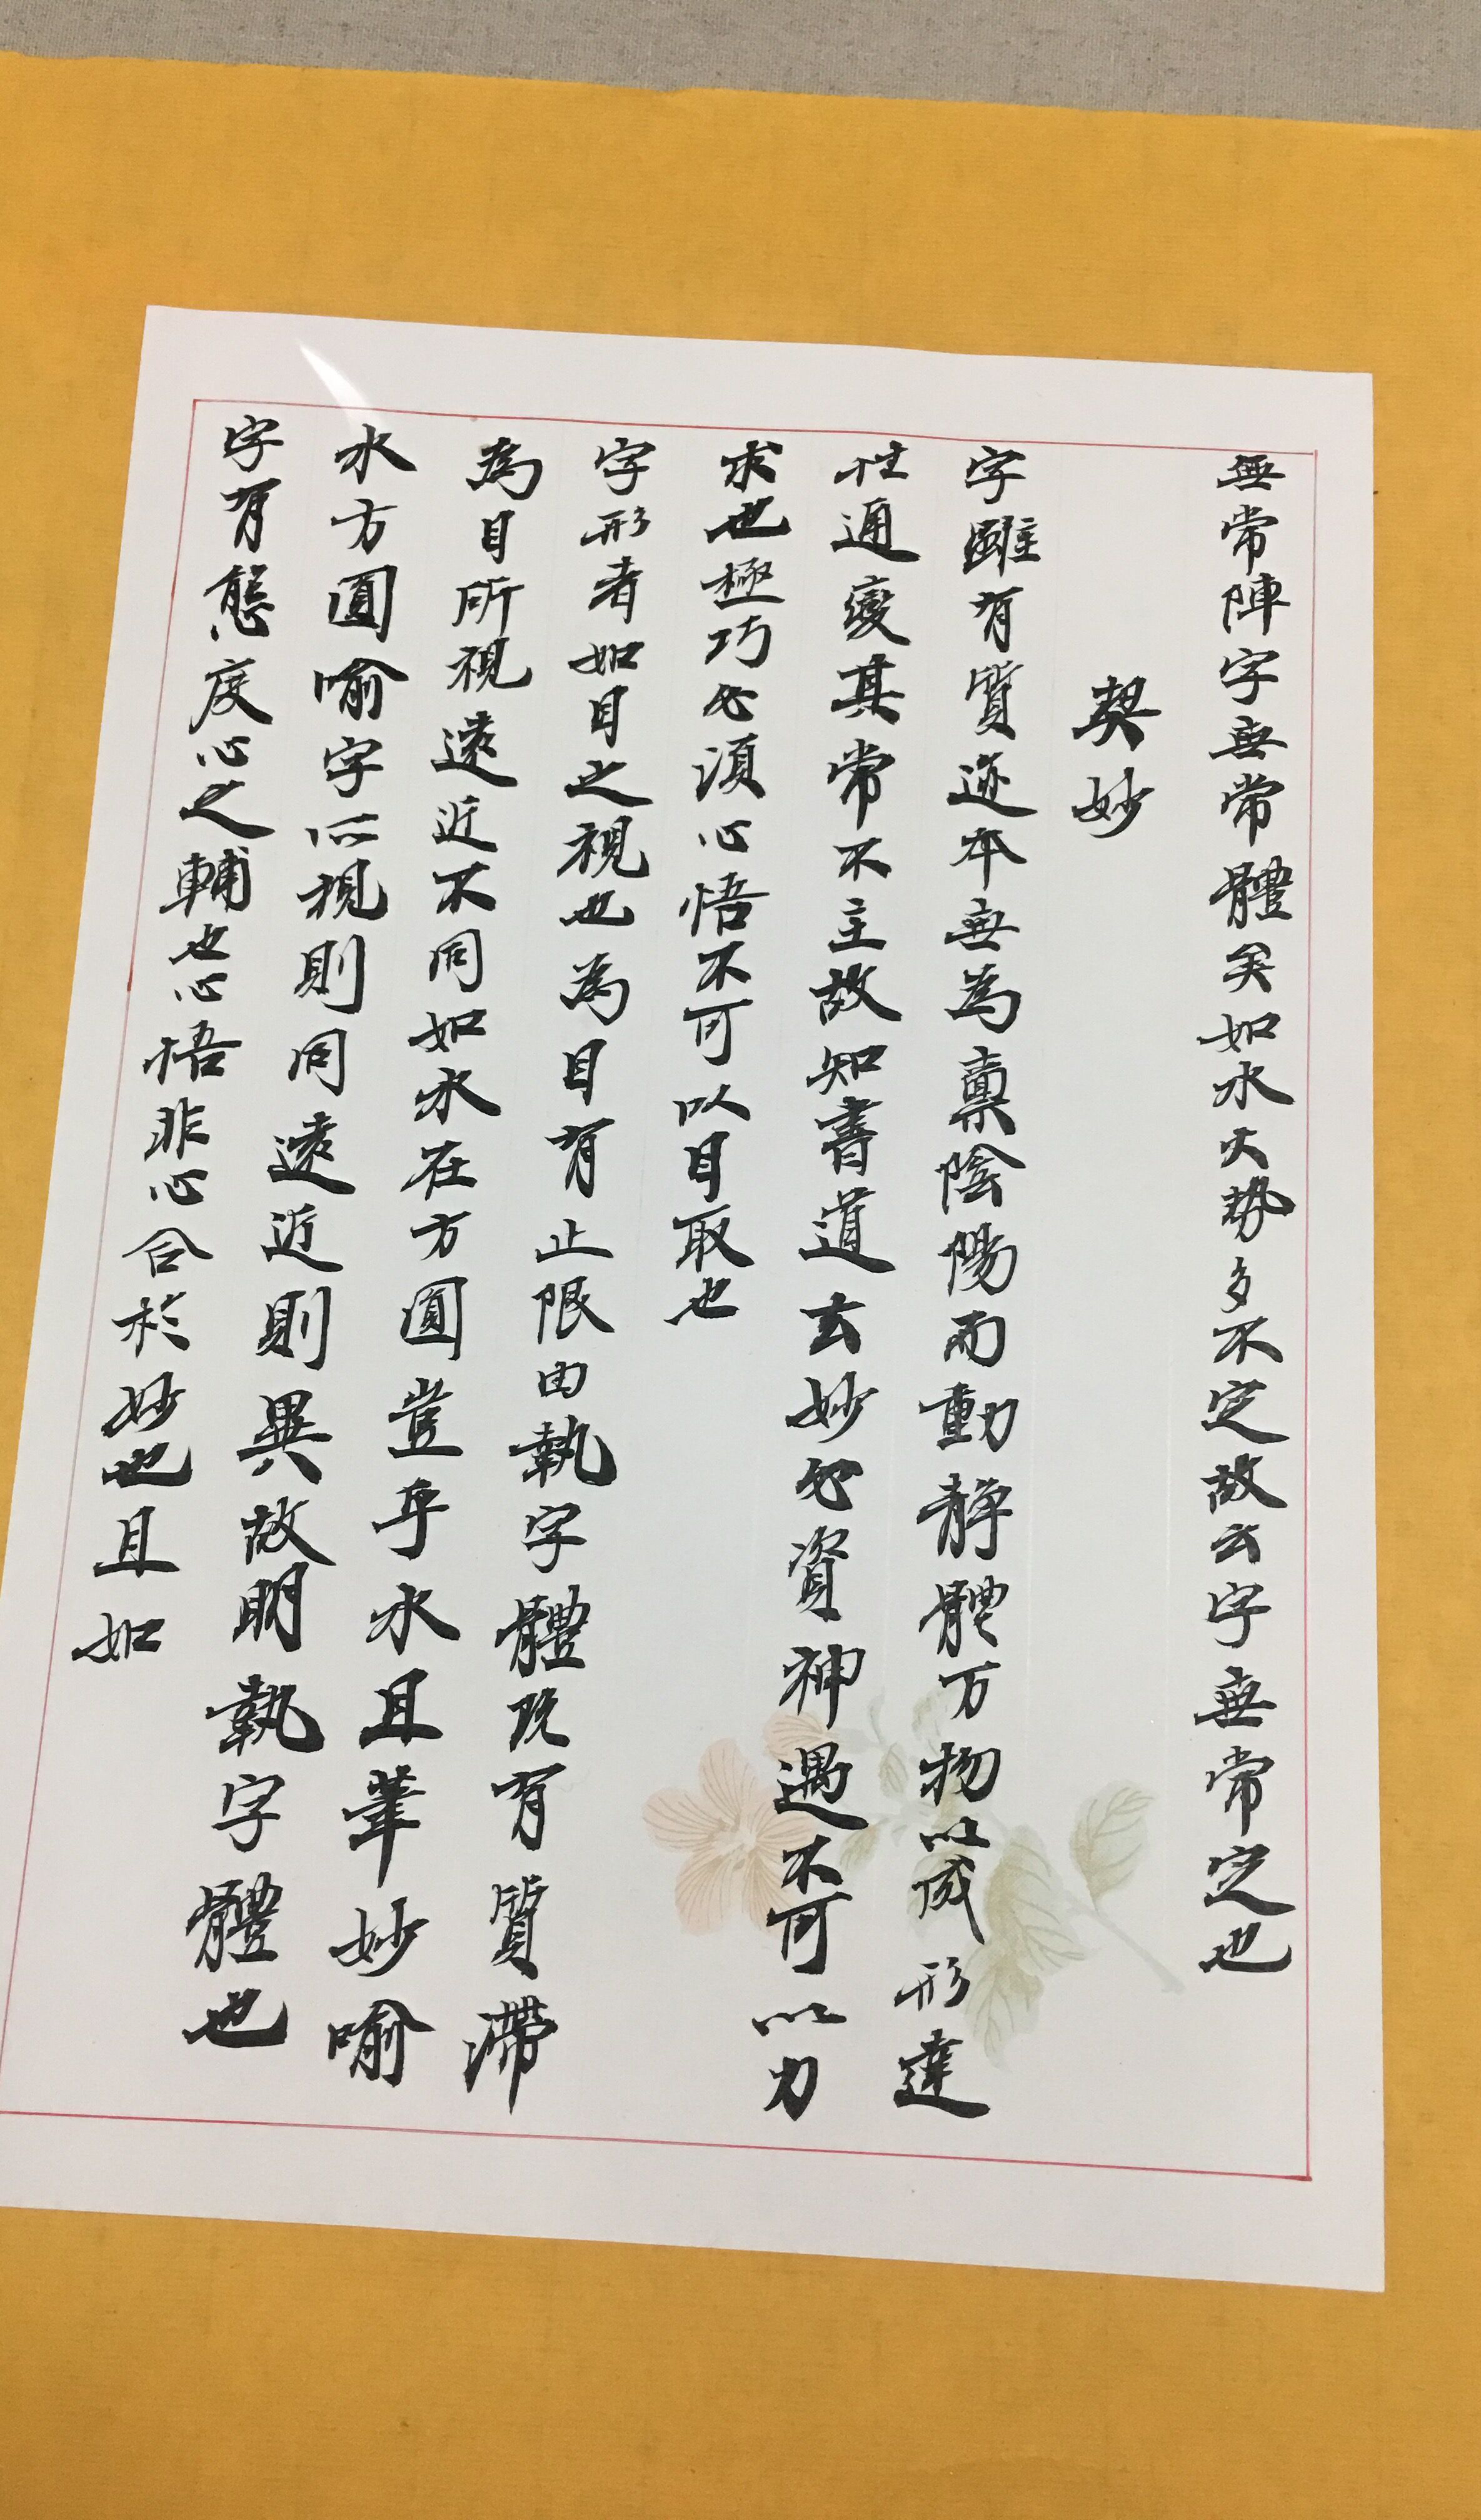 無常陣字無常體矣如水火勢多不定故云字無常定也
契妙
字雖有質迹本無為稟陰陽而動靜體万物以成形達
性通變其常不主故知書道玄妙必資神遇不可以力
求也極巧必須心悟不可以目取也
字形者如目之視也為目有止限由執字體既有質滯
為目所視遠近不同如水在方圓豈乎水且筆妙喻
水方圓喻字所視則同遠近則異故明執字體也
字有態度心之輔也心悟非心合於妙也且如